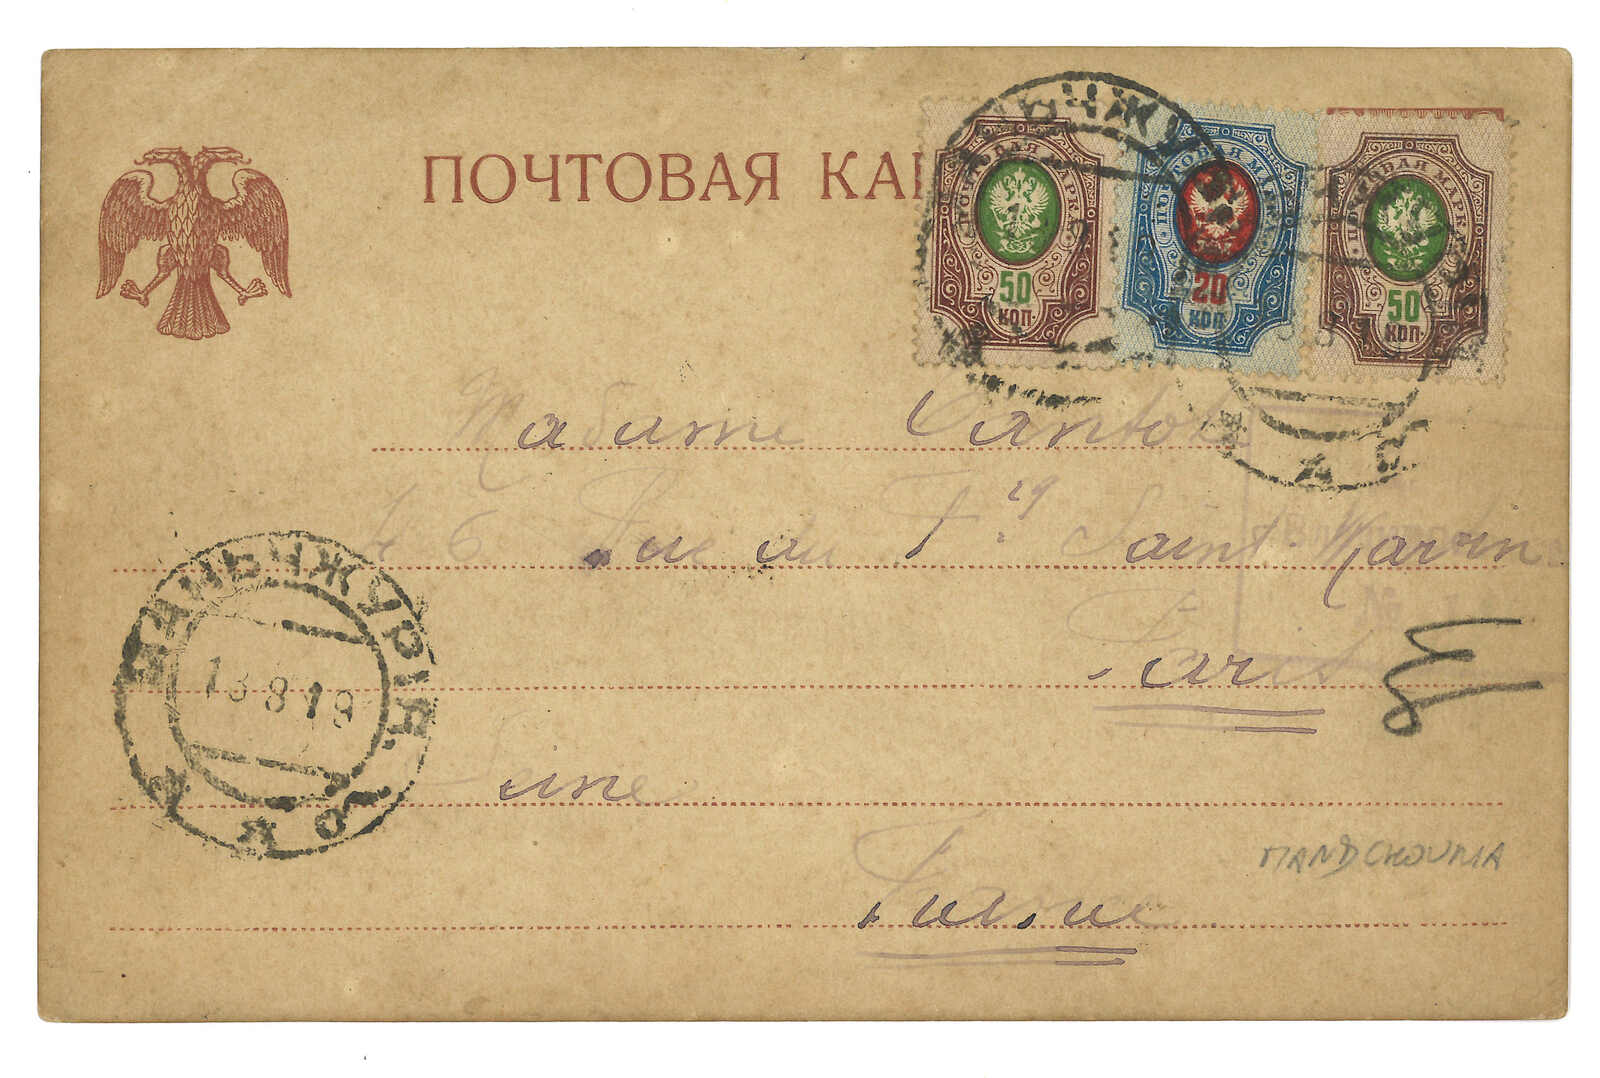 ПОЧТОВАЯ КА
ПОЧТОВАЯ МАРКА
50
КОП.
ПОЧТОВАЯ МАРКА
20
КОП.
ПОЧТОВАЯ МАРКА
50
КОП.
Madame
46 Rue du Fg Saint-Martin
Paris
Seine
France
МАНЬЧЖУРІЯ
13 8 19
№
MANDCHOURIA